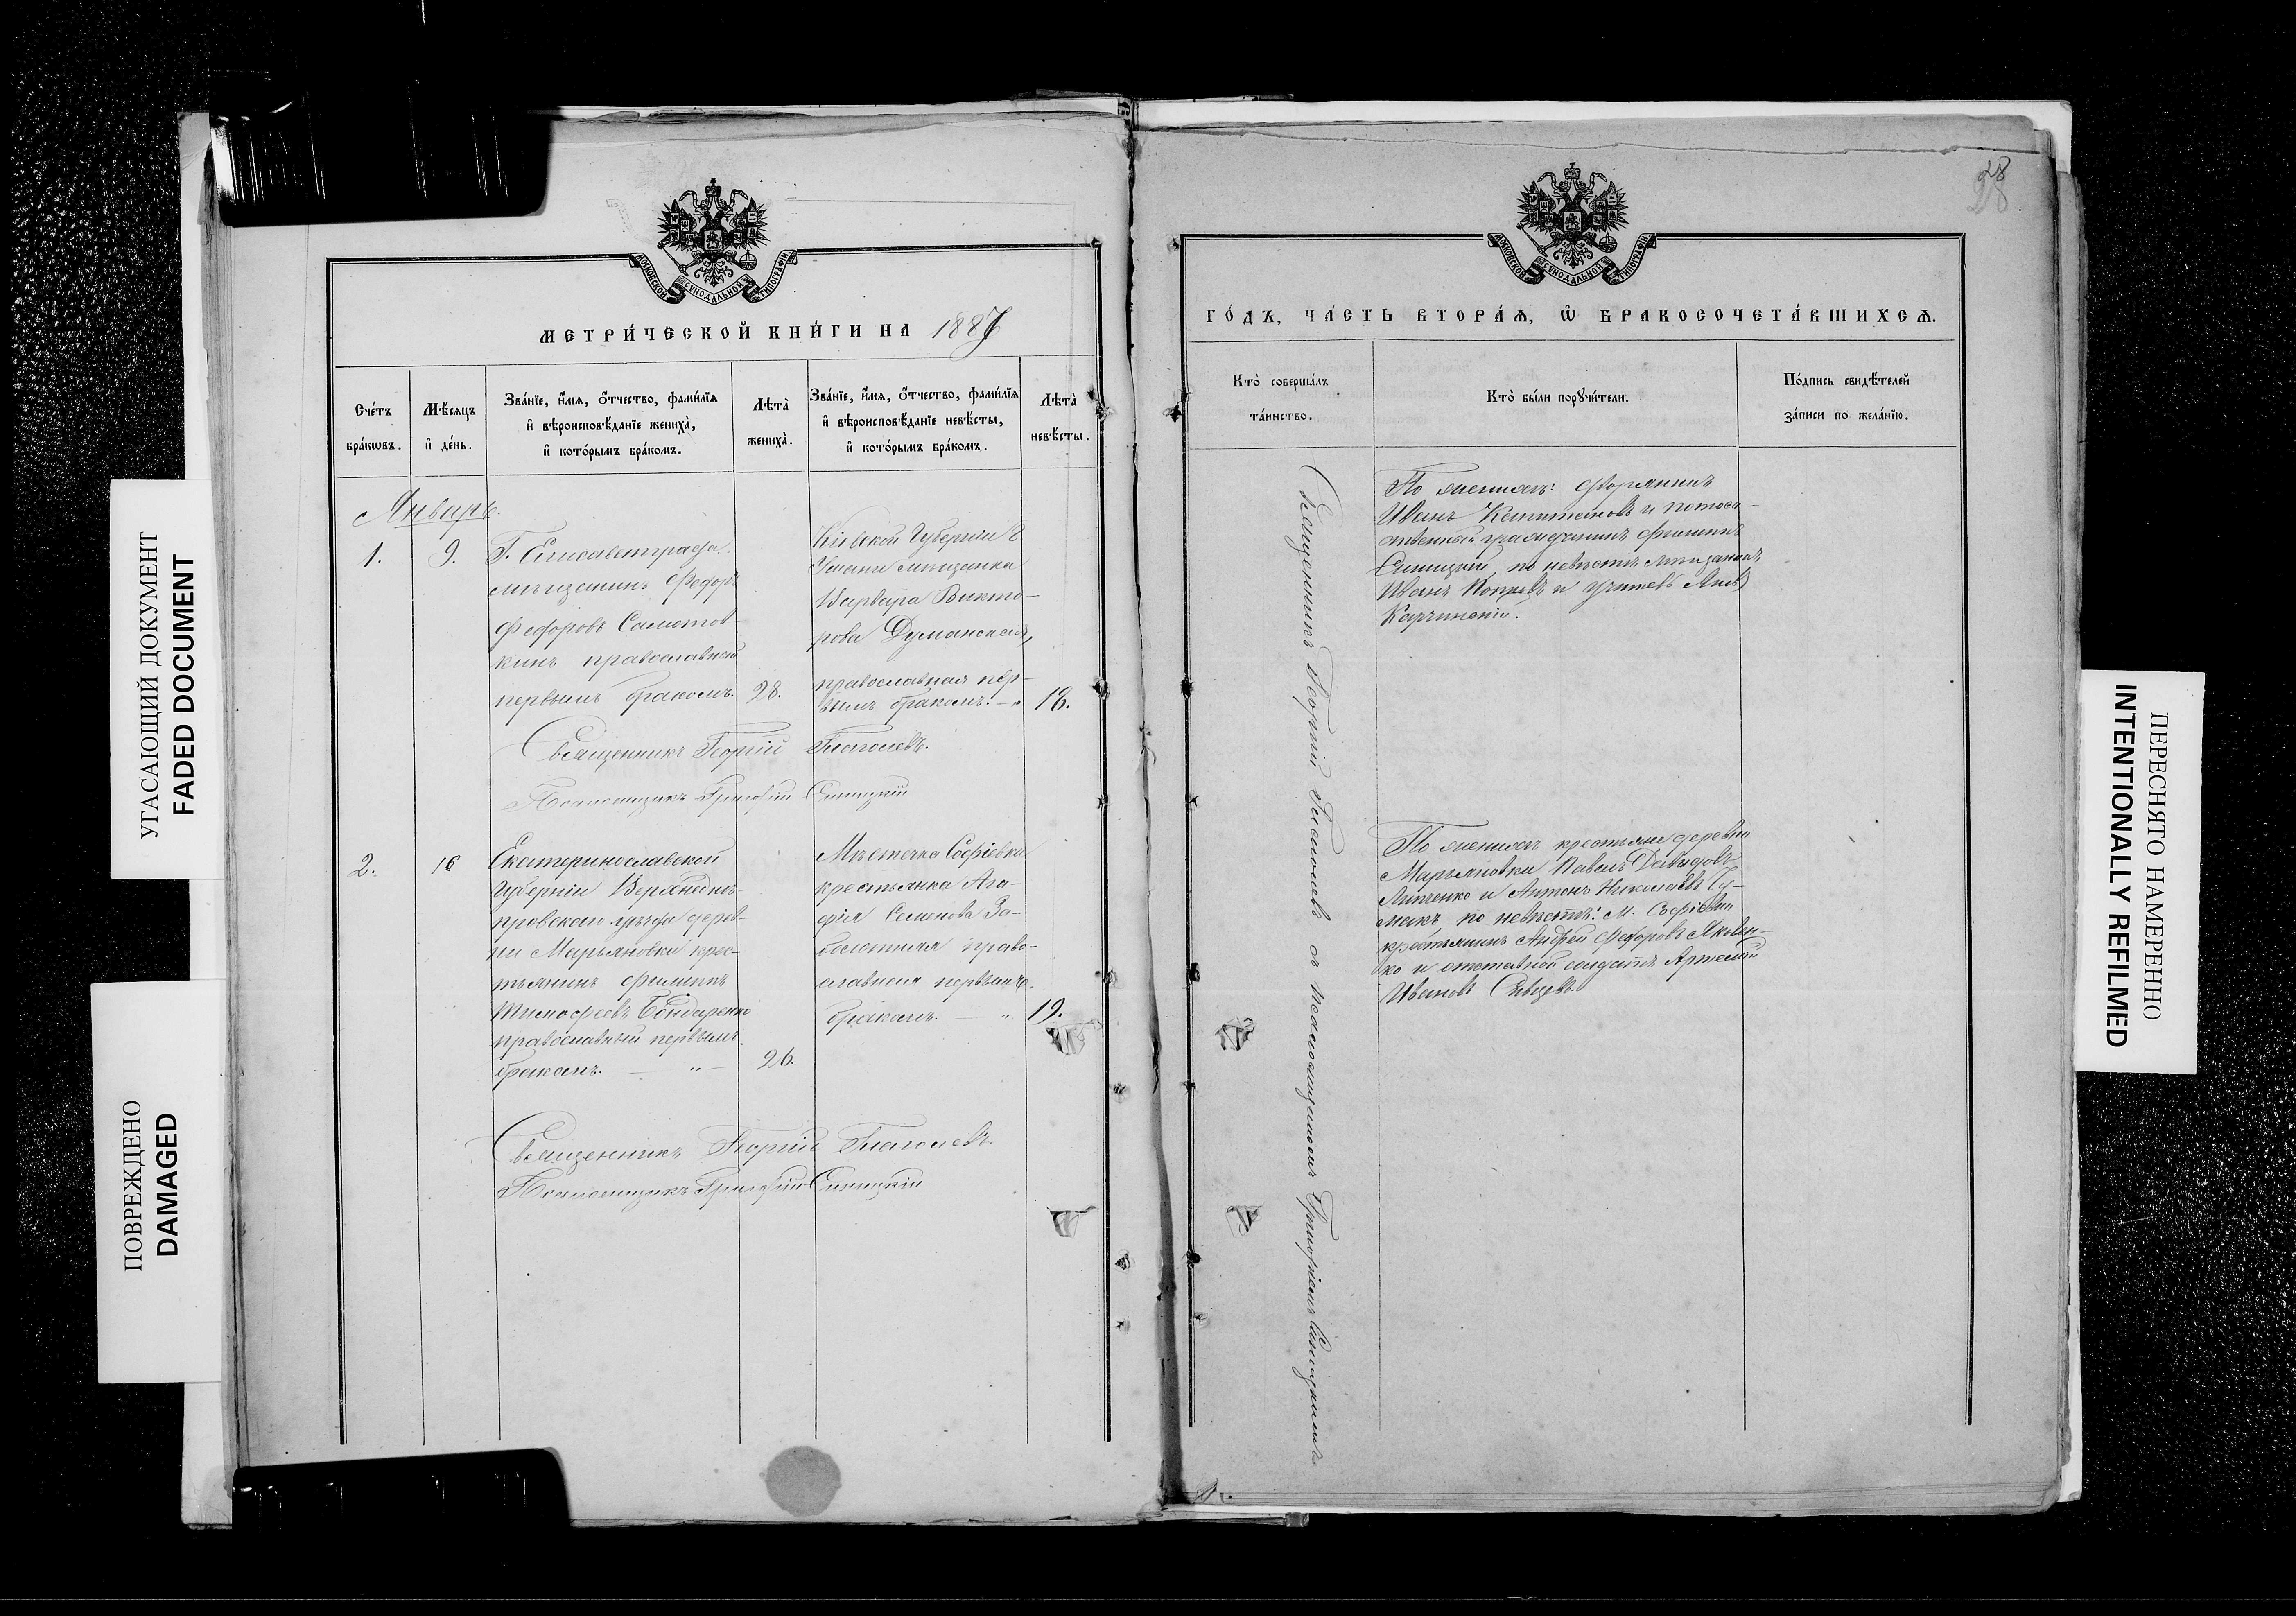 УГАСАЮЩИЙ ДОКУМЕНТ
FADED DOCUMENT
ПОВРЕЖДЕНО
DAMAGED
МОСКОВСКОЙ СѴНОДАЛЬНОЙ ТИПОГРАФІИ
МЕТРИ́ЧЕСКОЙ КНИ́ГИ НА 1887
Сче́тъ бра́кѡвъ.
Мѣ́сяцъ и҆ де́нь.
Зва́нїе, и҆́мя, о҆́тчество, фами́лїя
и҆ вѣроисповѣ́данїе жениха̀,
и҆ кото́рымъ бра́комъ.
Лѣта̀ жениха̀.
Зва́нїе, и҆́мя, о҆́тчество, фами́лїя
и҆ вѣроисповѣ́данїе невѣ́сты,
и҆ кото́рымъ бра́комъ.
Лѣта̀ невѣ́сты.
Январь.
1.
9.
Г. Елисаветграда
мѣщанинъ Федоръ
Федоровъ Самотов
кинъ православный
первымъ бракомъ.
28.
Кіевской Губерніи г
Умани мѣщанка
Варвара Викто-
рова Думанская,
православная пер-
вымъ бракомъ. —
18.
Священникъ Георгій Глаголевъ.
Псаломщикъ Григорій Синицкій
2.
16
Екатеринославской
Губерніи Верхнеднѣ-
провскаго уѣзда дерев-
ни Марьяновки крес-
тьянинъ Филиппъ
Тимофеевъ Бондаренко
православный первымъ
бракомъ. — „ —
26.
Мѣстечка Софіевки
крестьянка Ага-
фія Семенова За-
болотняя право-
славная первымъ
бракомъ. — „
19.
Священникъ Георгій Глаголевъ.
Псаломщикъ Григорій Синицкій
28
28
МОСКОВСКОЙ СѴНОДАЛЬНОЙ ТИПОГРАФІИ
ГО́ДЪ, ЧА́СТЬ ВТОРА́Ѧ, Ѡ҆ БРАКОСОЧЕТА́ВШИХСѦ.
Кто̀ соверша́лъ
та́инство.
Кто̀ бы́ли порꙋчи́тели.
По́дпись свидѣ́телей
за́писи по жела́нїю.
Священникъ Георгій Глаголевъ съ псаломщикомъ Григоріемъ Синицкимъ
По женихѣ: дворянинъ
Иванъ Капитановъ и потом-
ственный гражданинъ Филиппъ
Синицкій, по невѣстѣ мѣщанинъ
Иванъ и учитель Яковъ
По женихѣ крестьяне деревни
Марьяновки Павелъ Давидовъ
и Антонъ Николаевъ Чу-
макъ по невѣстѣ: М. Софіевки
крестьянинъ Андрей Федоровъ Яковен-
ко и отставной солдатъ Артемій
Ивановъ
ПЕРЕСНЯТО НАМЕРЕННО
INTENTIONALLY REFILMED